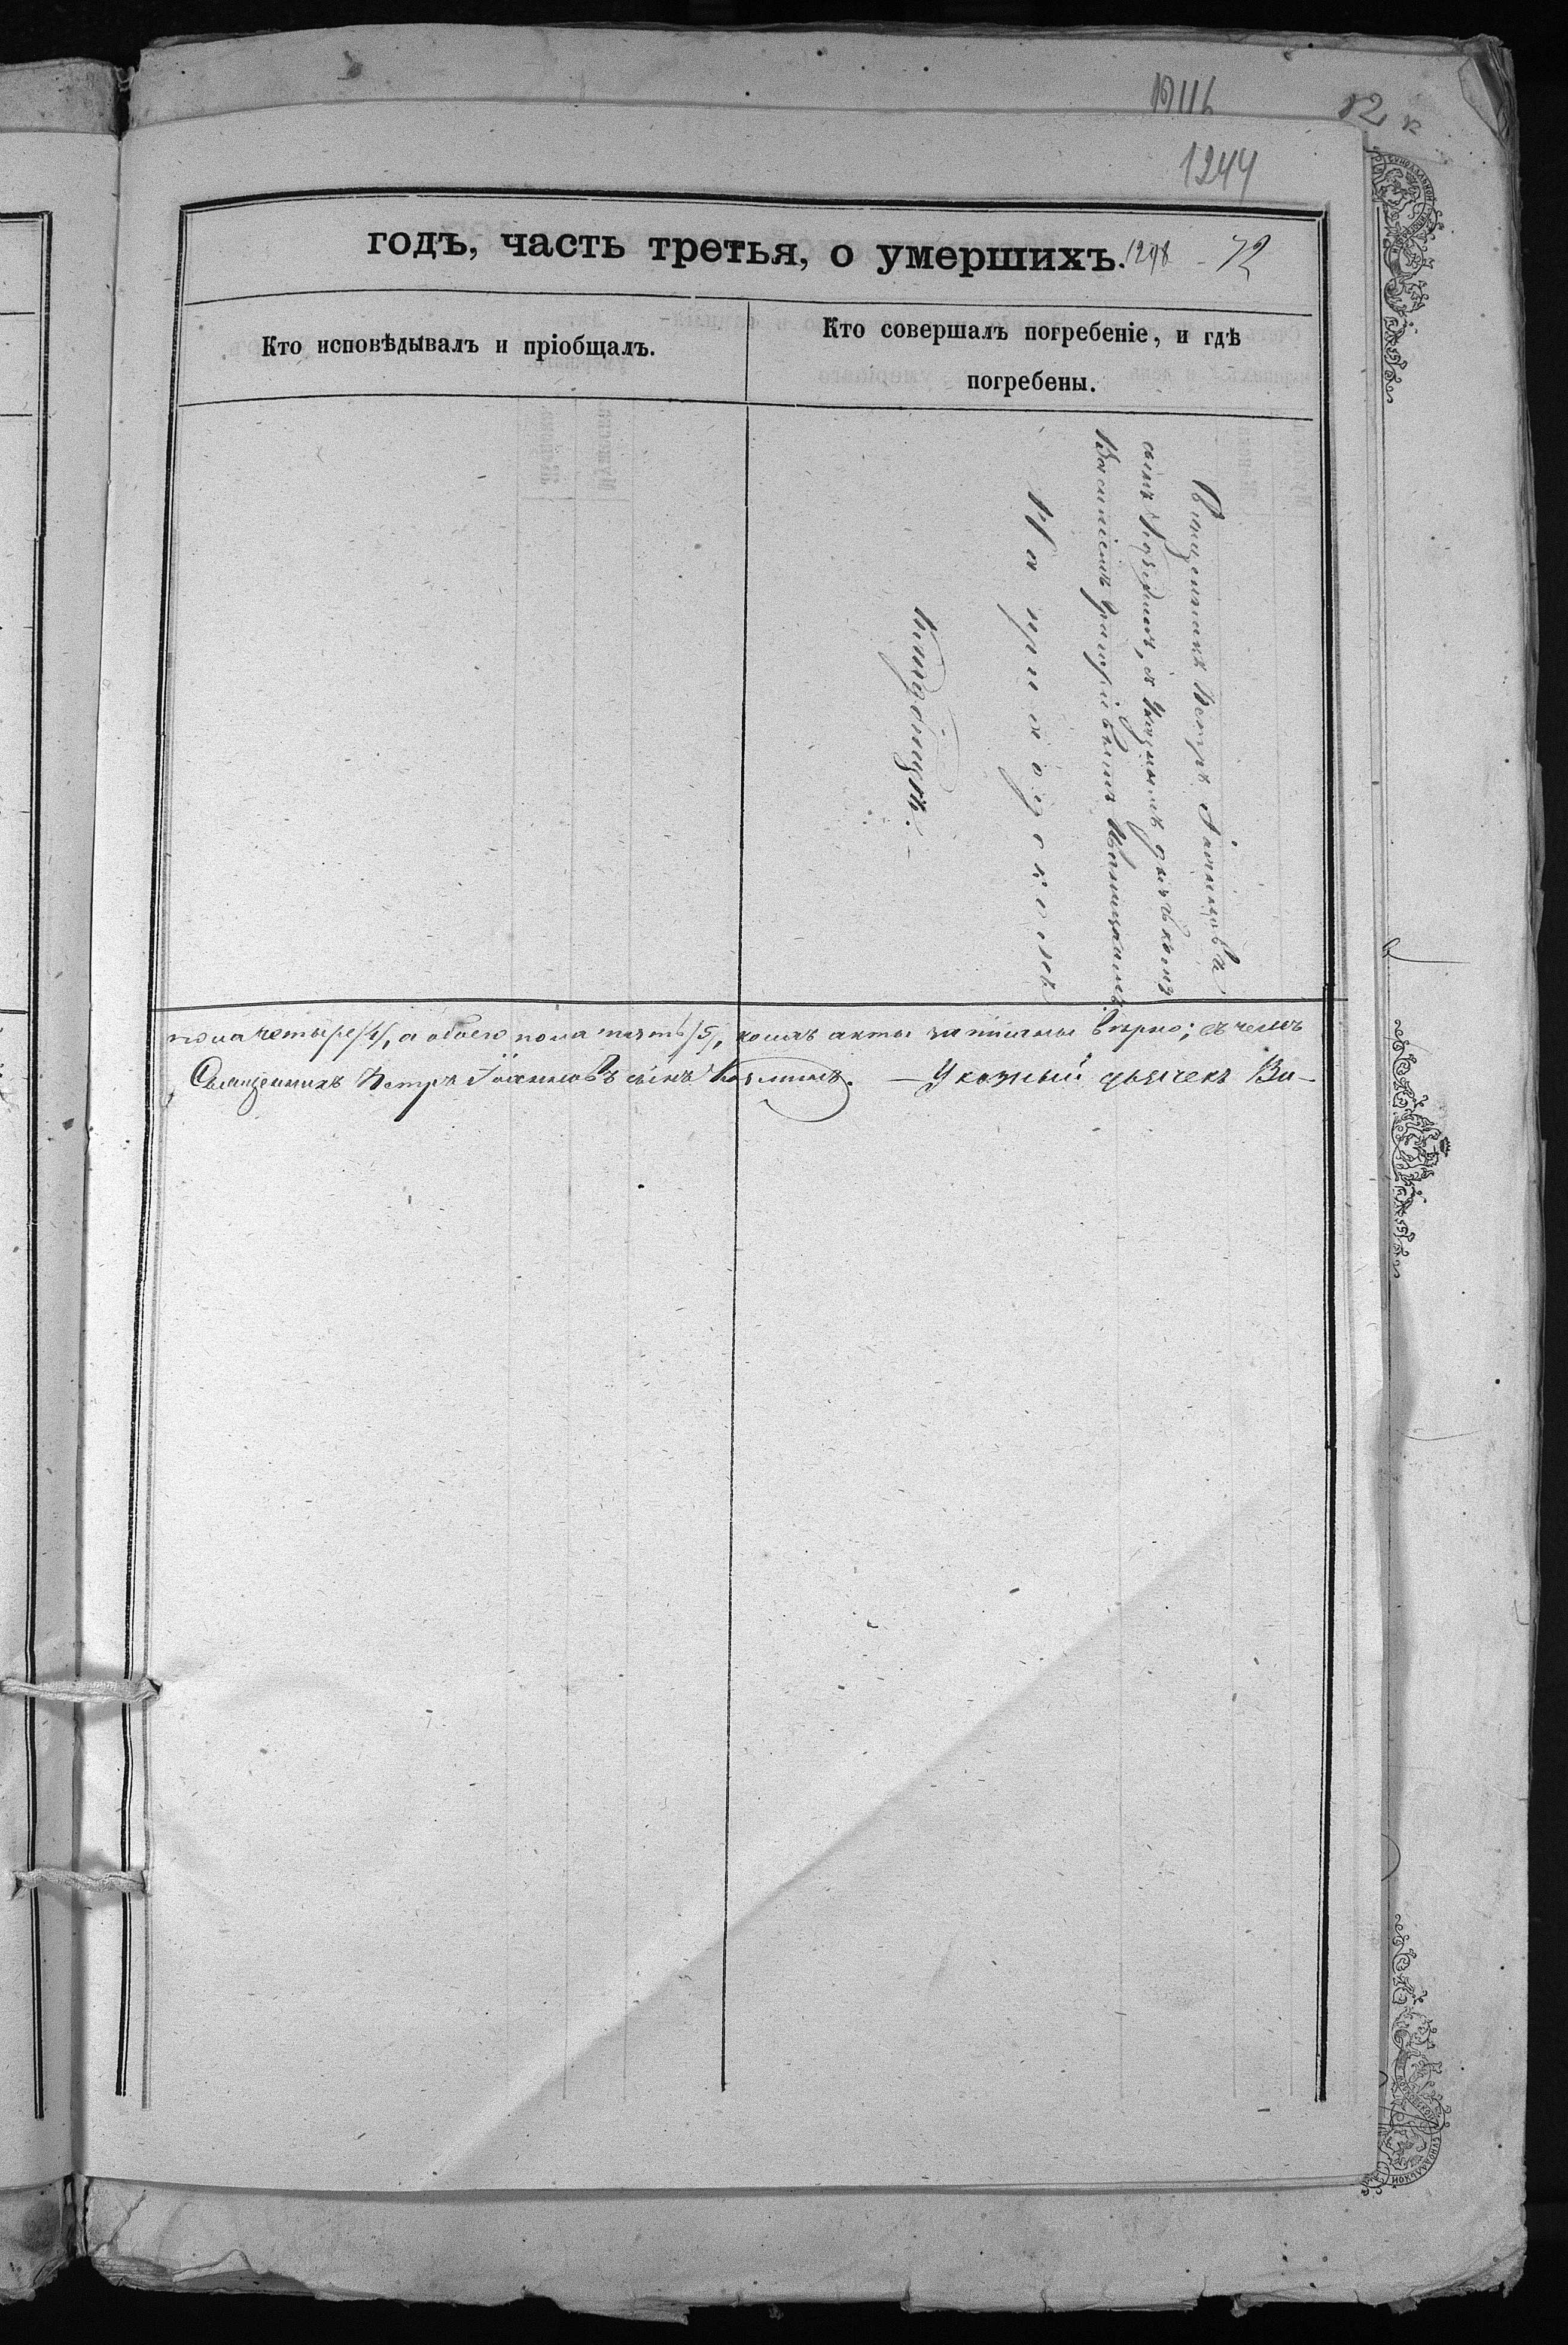 1244
годъ, часть третья, о умершихъ. 1248 - 72
Кто исповѣдывалъ и пріобщалъ.
Кто совершалъ погребеніе, и гдѣ
погребены.
Священникъ Петръ Іоанновъ
сынъ съ Указнымъ дьячкомъ
Василіемъ Григорьевымъ
На приходскомъ
кладбищѣ.
пола четыре /4/, а обоего пола пять /5/, коихъ акты записаны вѣрно; въ чемъ
Священникъ Петръ Іоанновъ сынъ Указный дьячекъ Ва-